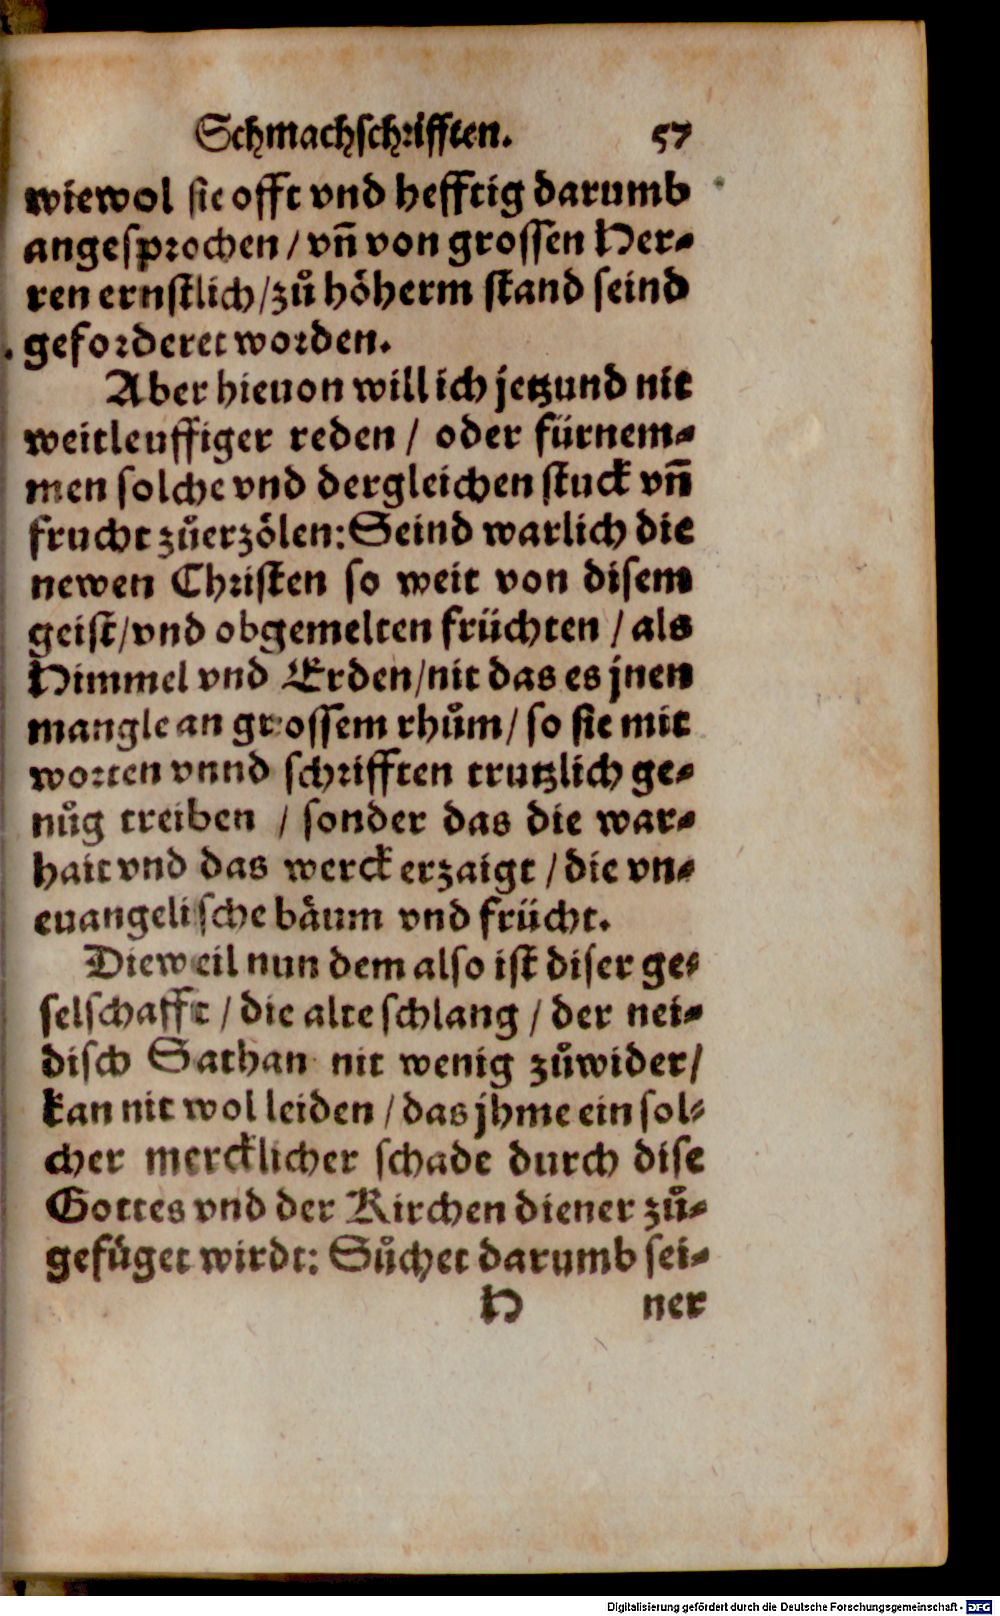 Schmachschrifften. 57
wiewol sie offt vnd hefftig darumb
angesprochen / vñ von grossen Her-
ren ernstlich / zů höherm stand seind
geforderet worden.
Aber hieuon will ich jetzund nit
weitleuffiger reden / oder fürnem-
men solche vnd dergleichen stuck vñ
frucht zůerzölen: Seind warlich die
newen Christen so weit von disem
geist / vnd obgemelten früchten / als
Himmel vnd Erden / nit das es jnen
mangle an grossem rhům / so sie mit
worten vnnd schrifften trutzlich ge-
nůg treiben / sonder das die war-
hait vnd das werck erzaigt / die vn-
euangelische bäum vnd frücht.
Dieweil nun dem also ist diser ge-
selschafft / die alte schlang / der nei-
disch Sathan nit wenig zůwider /
kan nit wol leiden / das jhme ein sol-
cher mercklicher schade durch dise
Gottes vnd der Kirchen diener zů-
gefüget wirdt: Sůchet darumb sei-
H ner
Digitalisierung gefördert durch die Deutsche Forschungsgemeinschaft - DFG